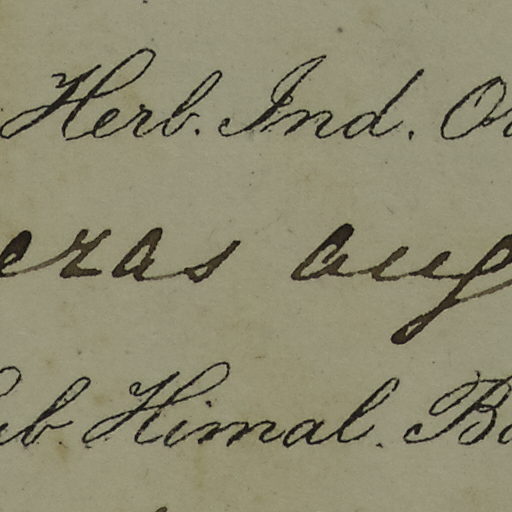 Herb. Ind. Or
eras aug
ub. Himal. Bo